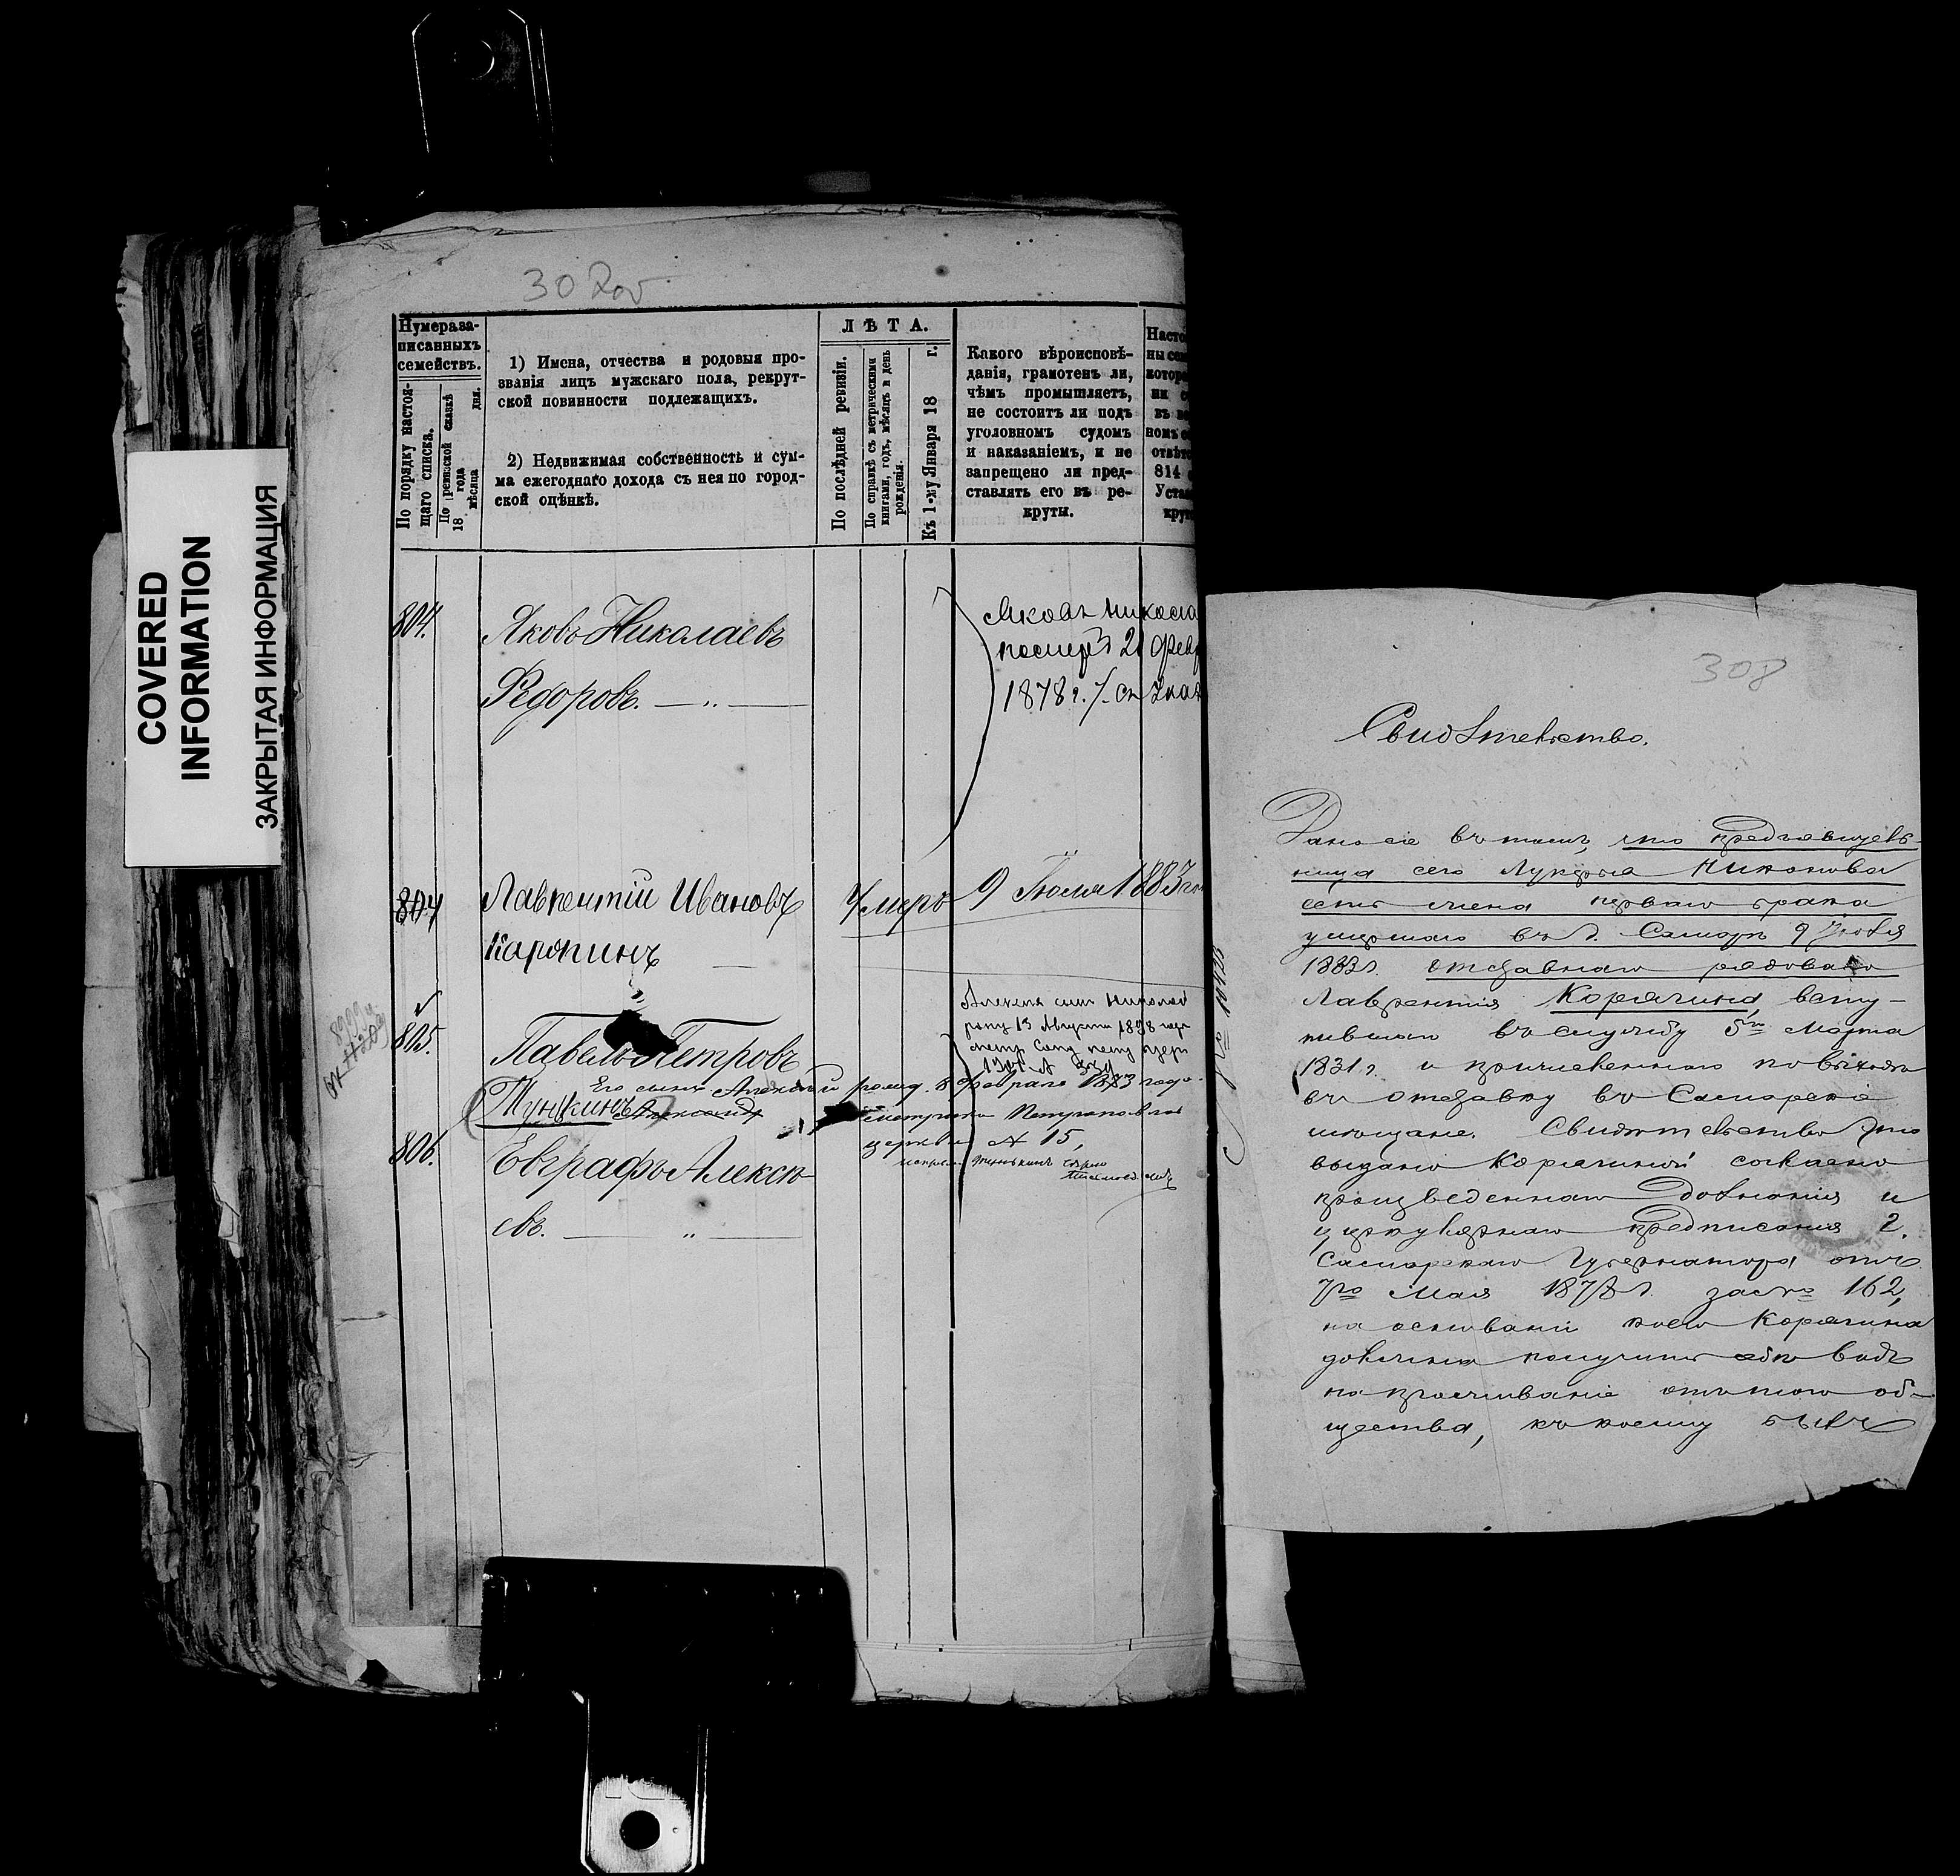 COVERED
INFORMATION
ЗАКРЫТАЯ ИНФОРМАЦИЯ
30
Нумера за-
писанныхъ
семействъ.
По порядку настоя-
щаго списка.
По ревизской сказкѣ
18 года
мѣсяца дня.
1) Имена, отчества и родовыя про-
званія лицъ мужскаго пола, рекрут-
ской повинности подлежащихъ.
2) Недвижимая собственность и сум-
ма ежегоднаго дохода съ нея по город-
ской оцѣнкѣ.
ЛѢТА.
По послѣдней ревизіи.
По справкѣ съ метрическими
книгами, годъ, мѣсяцъ и день
рожденія.
Къ 1-му Января 18 г.
Какого вѣроисповѣ-
данія, грамотенъ ли,
чѣмъ промышляетъ,
не состоитъ ли подъ
уголовномъ судомъ
и наказаніемъ, и не
запрещено ли пред-
ставлять его въ ре-
круты.
814
804. Яковъ Николаевъ
Ѳедоровъ. — „ —
Яковъ Никола
померъ 21 Февр
1878 г.
804 Лаврентій Ивановъ Умеръ 9 Іюля 1883
Карягинъ —
Алексѣя сынъ Николай
род. 13 Августа 1898
805. Павелъ Петровъ
Его сынъ Алексѣй рожд. 8 Февраля 1873 года
Тункинъ
метрика Петропавлов
церкви № 15,
806. Евграфъ Алексѣ-
евъ. — „ —
308
Свидѣтельство.
Дано сіе въ томъ, что предъявитель-
ница сего Лукерья Никонова
есть жена перваго брака
умершаго въ г. Самарѣ 9 Іюля
1883 г. отставнаго рядоваго
Лаврентія Корягина, всту-
пившаго въ службу 5го Марта
1831 г. и причисленнаго по выходѣ
въ отставку въ Самарскіе
мѣщане. Свидѣтельство это
выдано Корягиной согласно
произведеннаго дознанія и
циркулярнаго предписанія г.
Самарскаго Губернатора отъ
7го Мая 1878 г. за № 162,
на основаніи коего Корягина
должна получить себѣ видъ
на проживаніе отъ того об-
щества, къ коему былъ